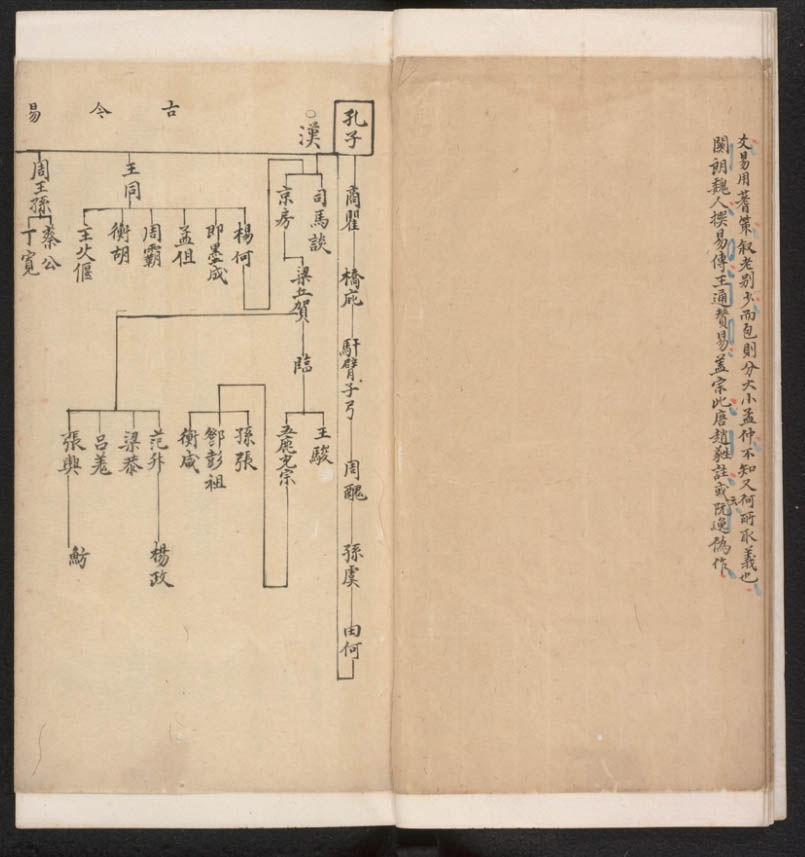 爻易用蓍策叙老别少而包則分大小孟仲不知又何所取義也
關朗魏人撰易傳王通贊易蓋宗此唐趙蕤註或云阮逸偽作
孔子
商瞿
橋庇
馯臂子弓
周醜
孫虞
田何
○漢
司馬談
京房
梁丘賀
臨
王駿
五鹿充宗
孫張
鄧彭祖
衡咸
古今易
王同
楊何
即墨成
孟但
周霸
衡胡
主父偃
范升
梁恭
呂羗
張興
楊政
魴
周王孫
蔡公
丁寬